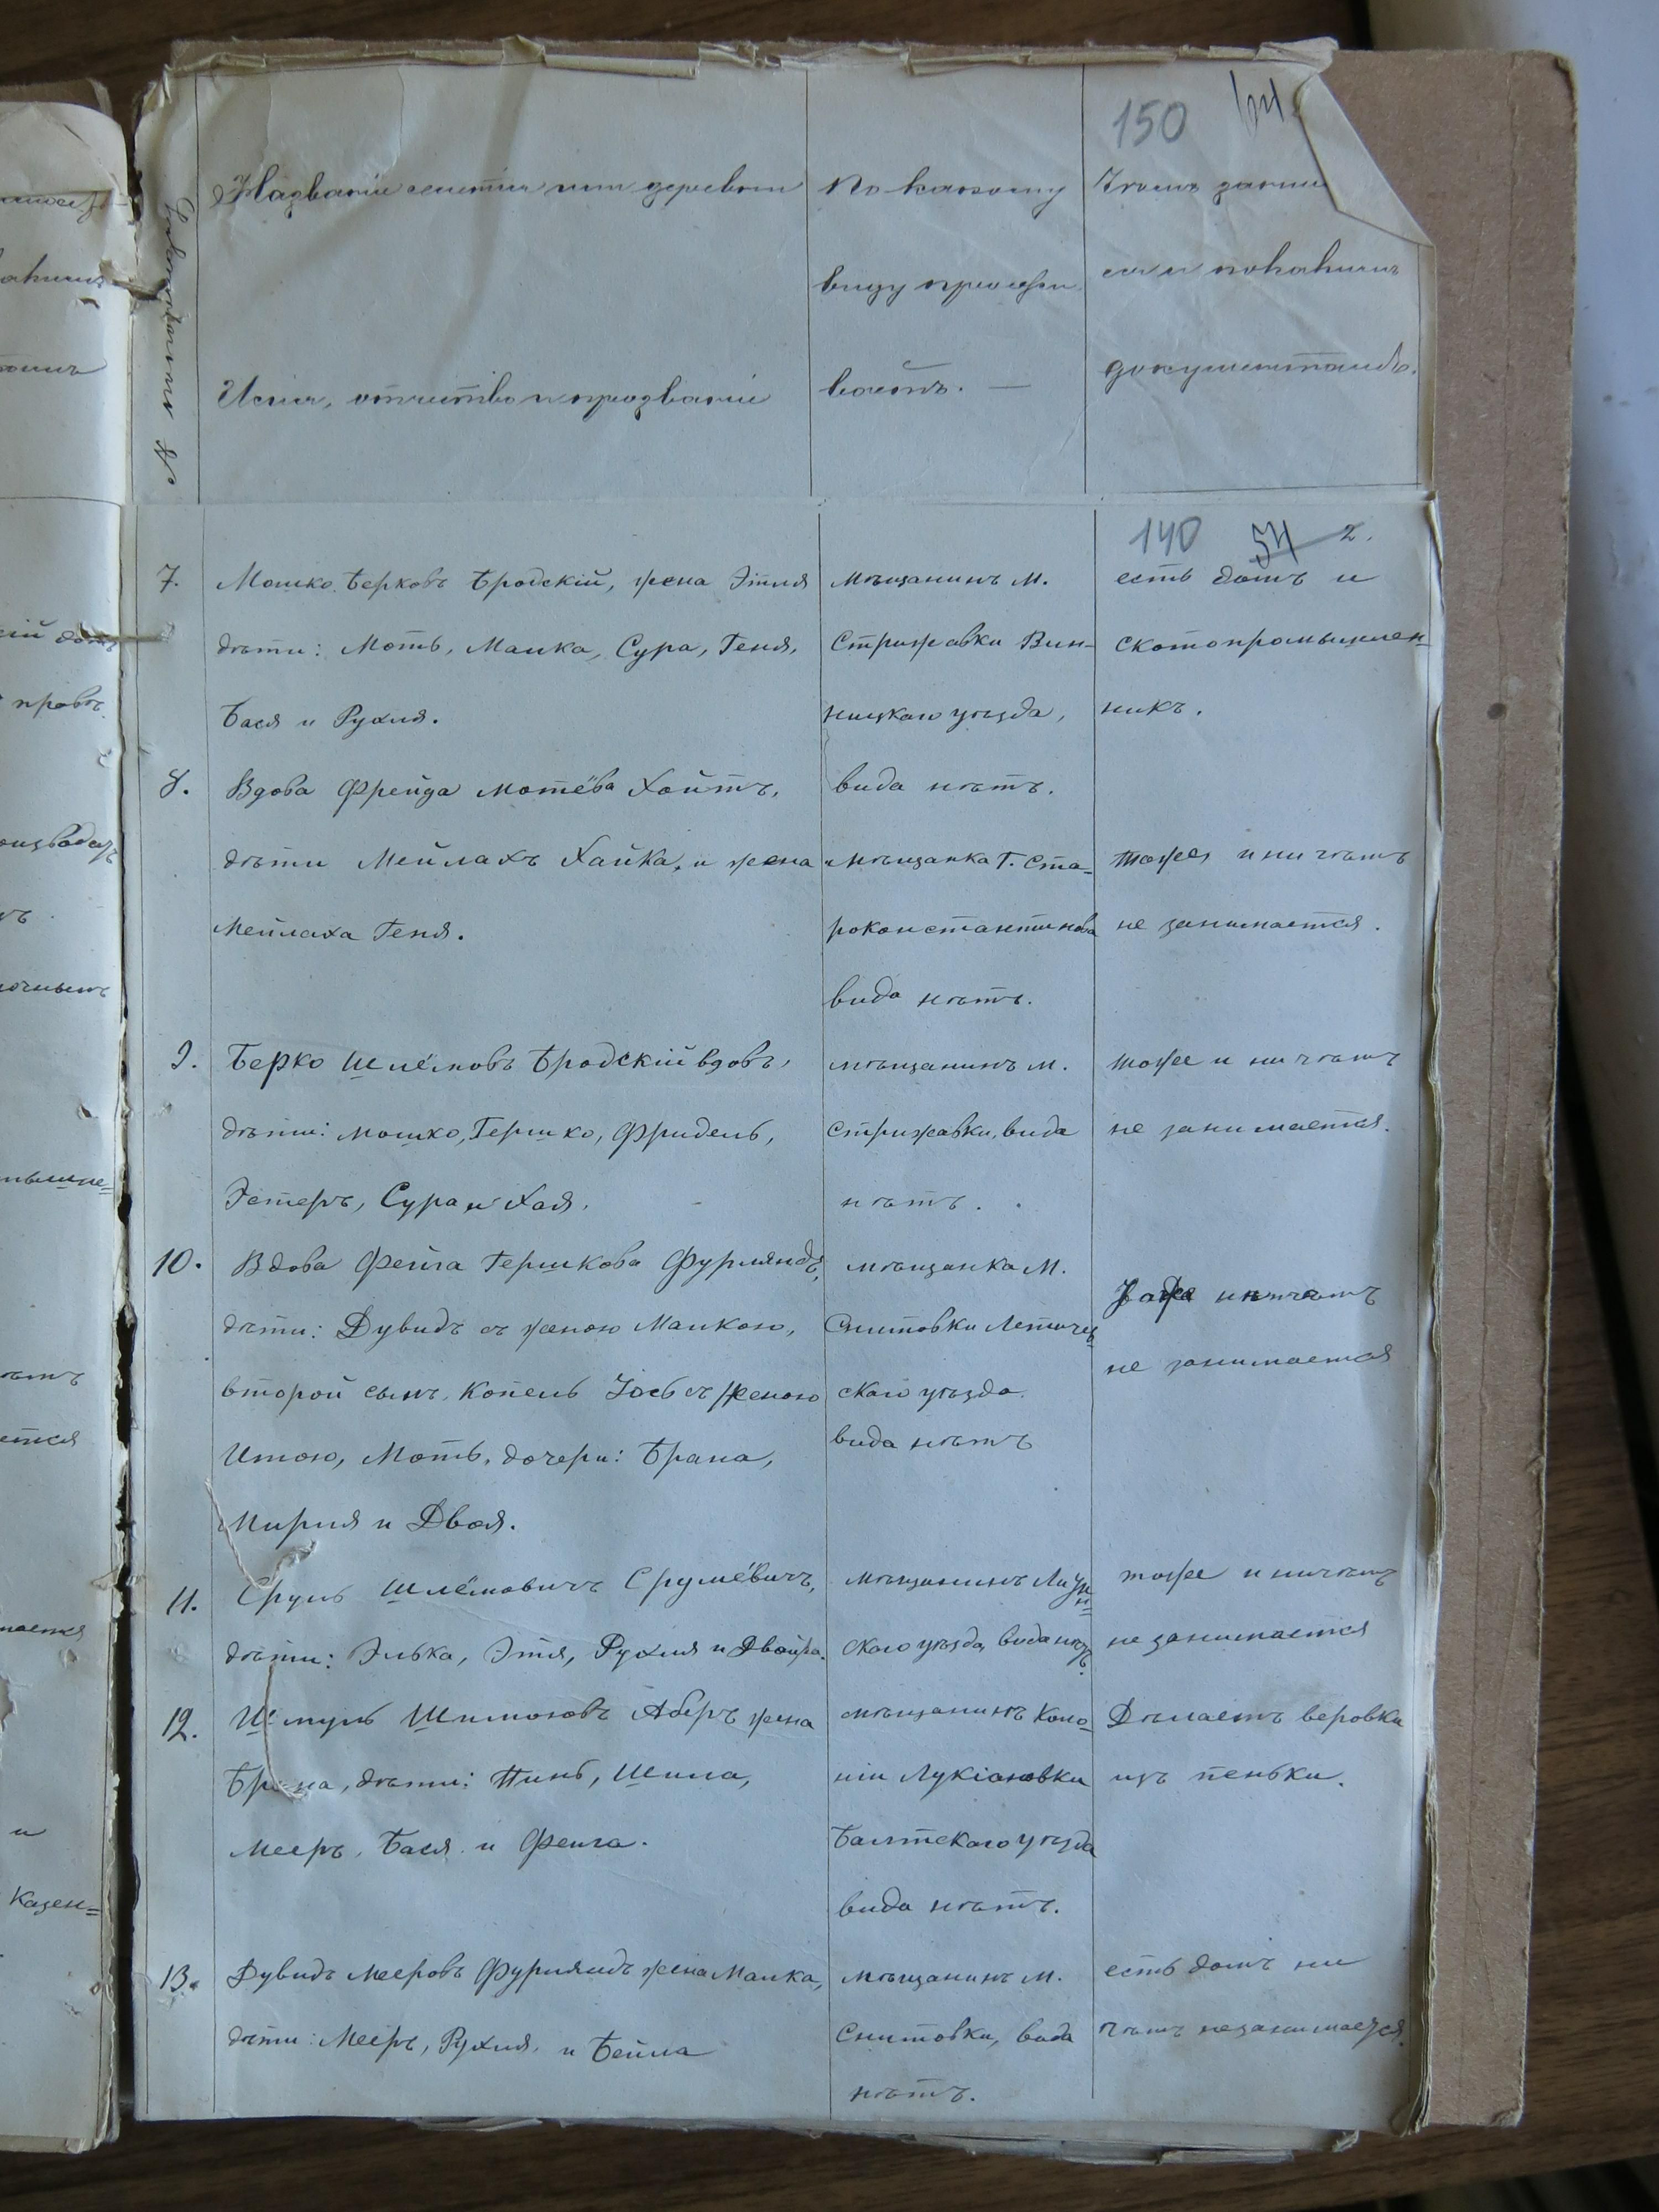 150
Названіе селенія или деревни
Имя, отчество и прозваніе
По какому
виду прожи
ваетъ. —
документамъ.
140 54 2.
7. Мошко Берковъ Бродскій, жена Этля
дѣти: Моть, Малка, Сура, Геня,
Бася и Рухля.
мѣщанинъ м.
Стрижавки Вин-
ницкаго уѣзда,
вида нѣтъ.
есть домъ и
скотопромышлен=
никъ.
8. Вдова Фрейда Мотёва Хайтъ,
дѣти Мейлахъ Хайка, и жена
Мейлаха Геня.
мѣщанка Г. Ста-
роконстантинова
вида нѣтъ.
тоже и ни чѣмъ
не занимается.
9. Берко Шлёмовъ Бродскій вдовъ,
дѣти: Мошко, Гершко, Фридель,
Эстеръ, Сура и Хая.
мѣщанинъ м.
Стрижавки, вида
нѣтъ.
тоже и ни чѣмъ
не занимается.
10. Вдова Фейга Гершкова Фурляндъ,
дѣти: Дувидъ съ женою Малкою,
второй сынъ, Копель Іось съ женою
Итою, Моть, дочери: Брана,
Мирля и Двоя.
мѣщанка м.
Снитовки Летичев
скаго уѣзда.
вида нѣтъ
тоже и ничѣмъ
не занимается
11. Сруль Шлёмовичъ Срулёвичъ,
дѣти: Элька, Этя, Рухля и Двойра.
мѣщанинъ
скаго уѣзда, вида нѣтъ.
тоже и ничѣмъ
не занимается
12. Шмуль Шимоновъ Аберъ жена
дѣти: Пинь, Шила,
Мееръ, Бася и Фейга.
мѣщанинъ коло=
ніи Лукіановки
Балтскаго уѣзда
вида нѣтъ.
Дѣлаетъ веровки
изъ пеньки.
13. Дувидъ Мееровъ Фурляндъ жена Малка,
дѣти: Мееръ, Рухля, и Бейла
мѣщанинъ м.
Снитовки, вида
нѣтъ.
есть домъ ни
чѣмъ незанимается.